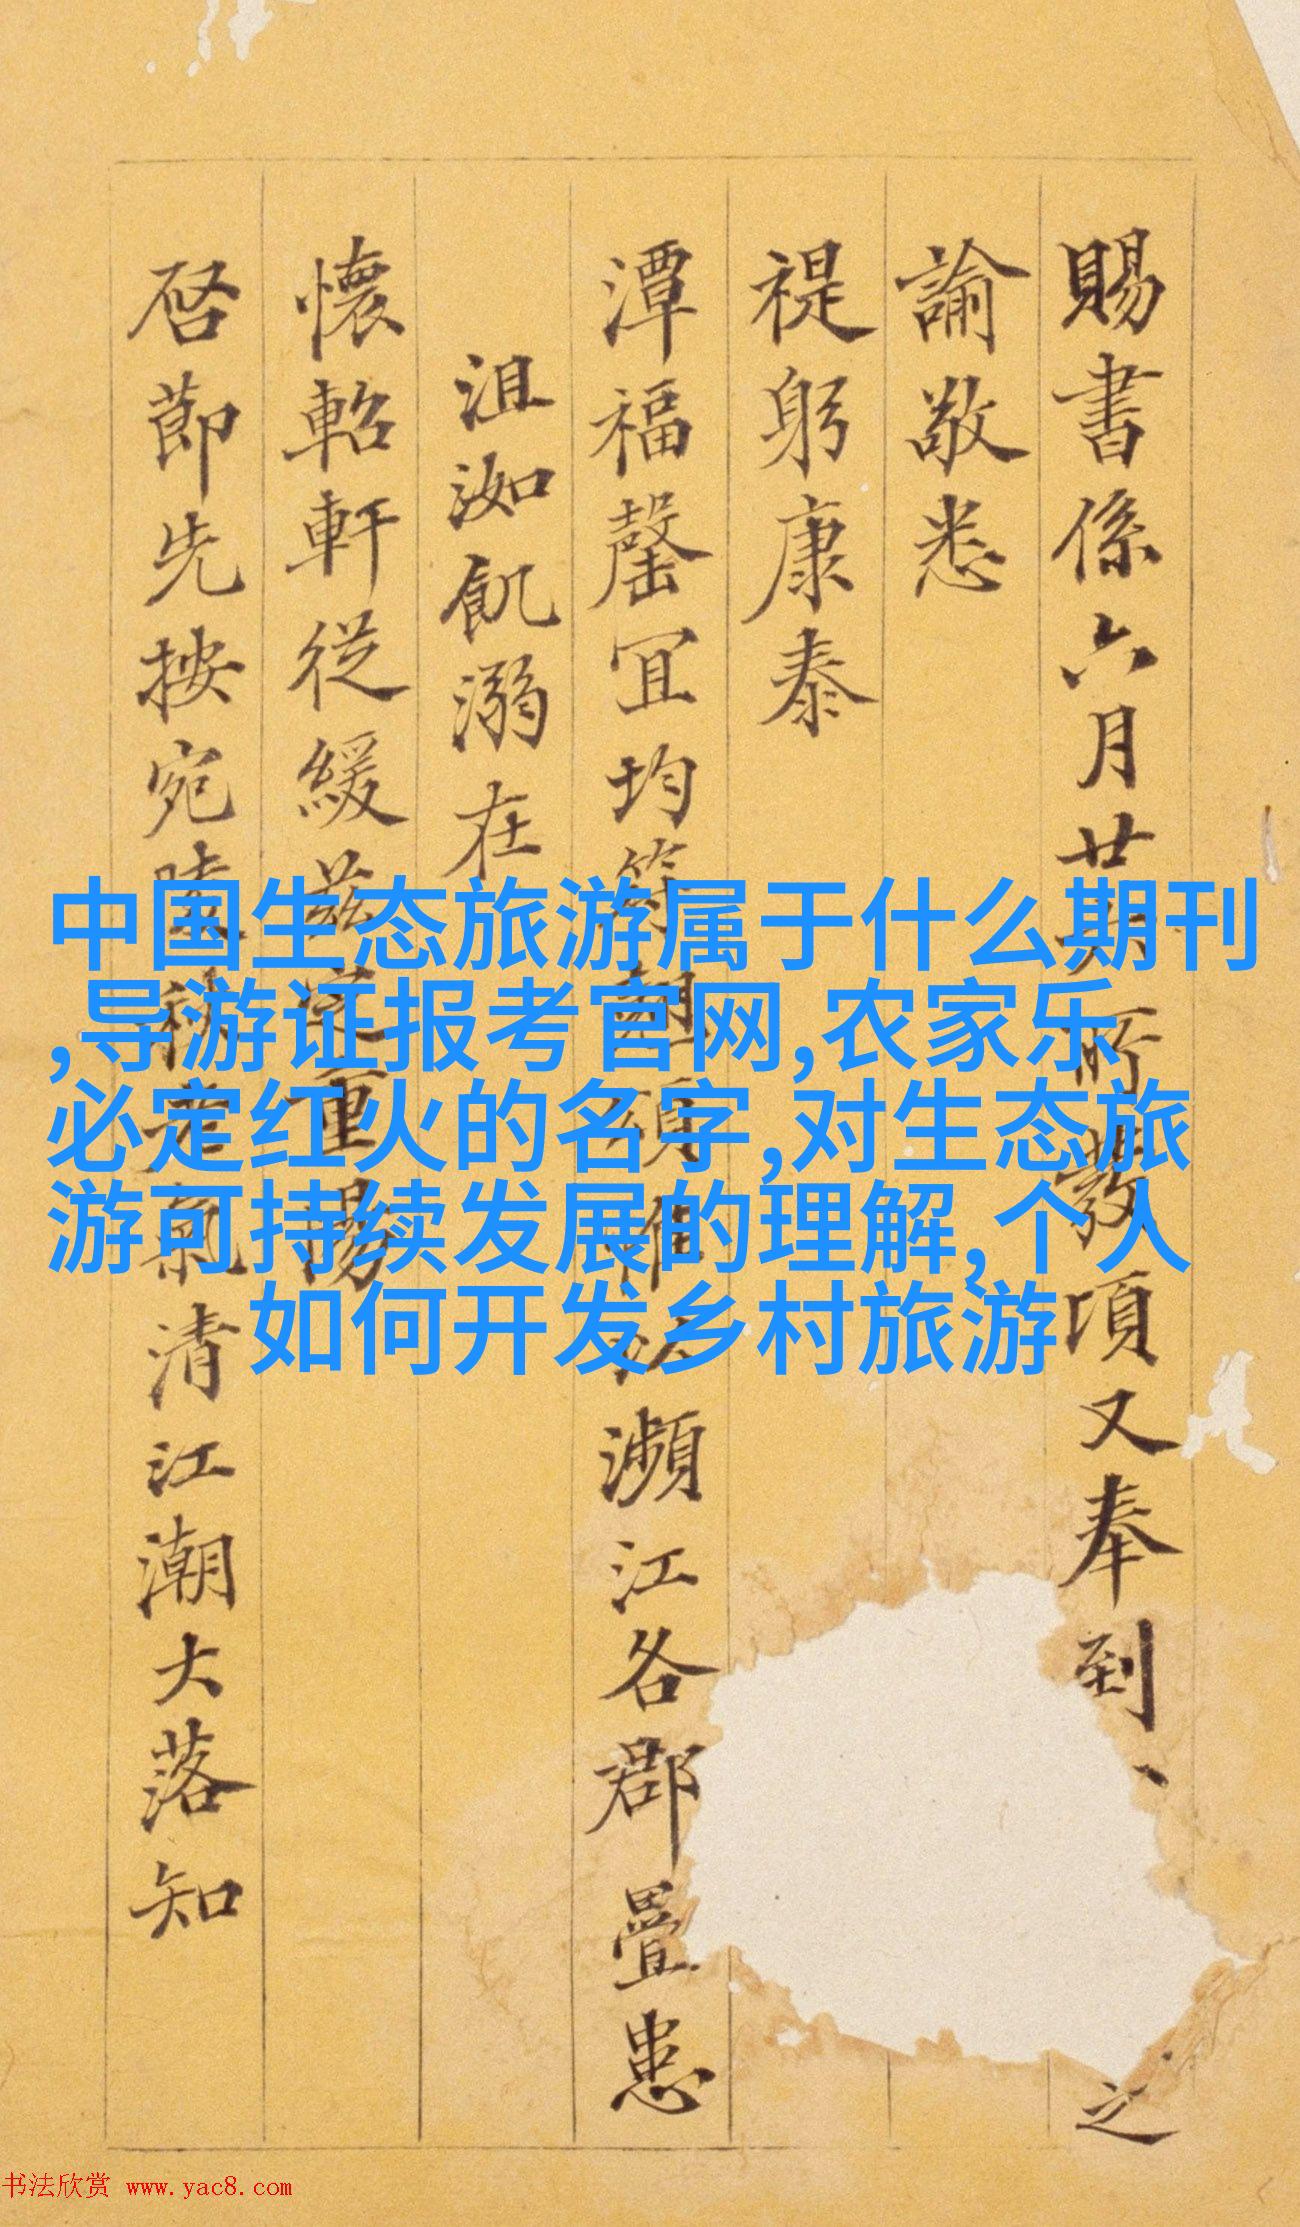 賜書係六月廿
所
教項又奉到
之
諭敬悉
禔躬康泰
潭福罄宜均
瀕江各郡疊患
沮洳飢溺在
懷軺軒從緩
重陽
啓節先按宛
清江潮大落知
中国生态旅游属于什么期刊
,导游证报考官网,农家乐
必定红火的名字,对生态旅
游可持续发展的理解,个人
如何开发乡村旅游
书法欣赏 www.yac8.com